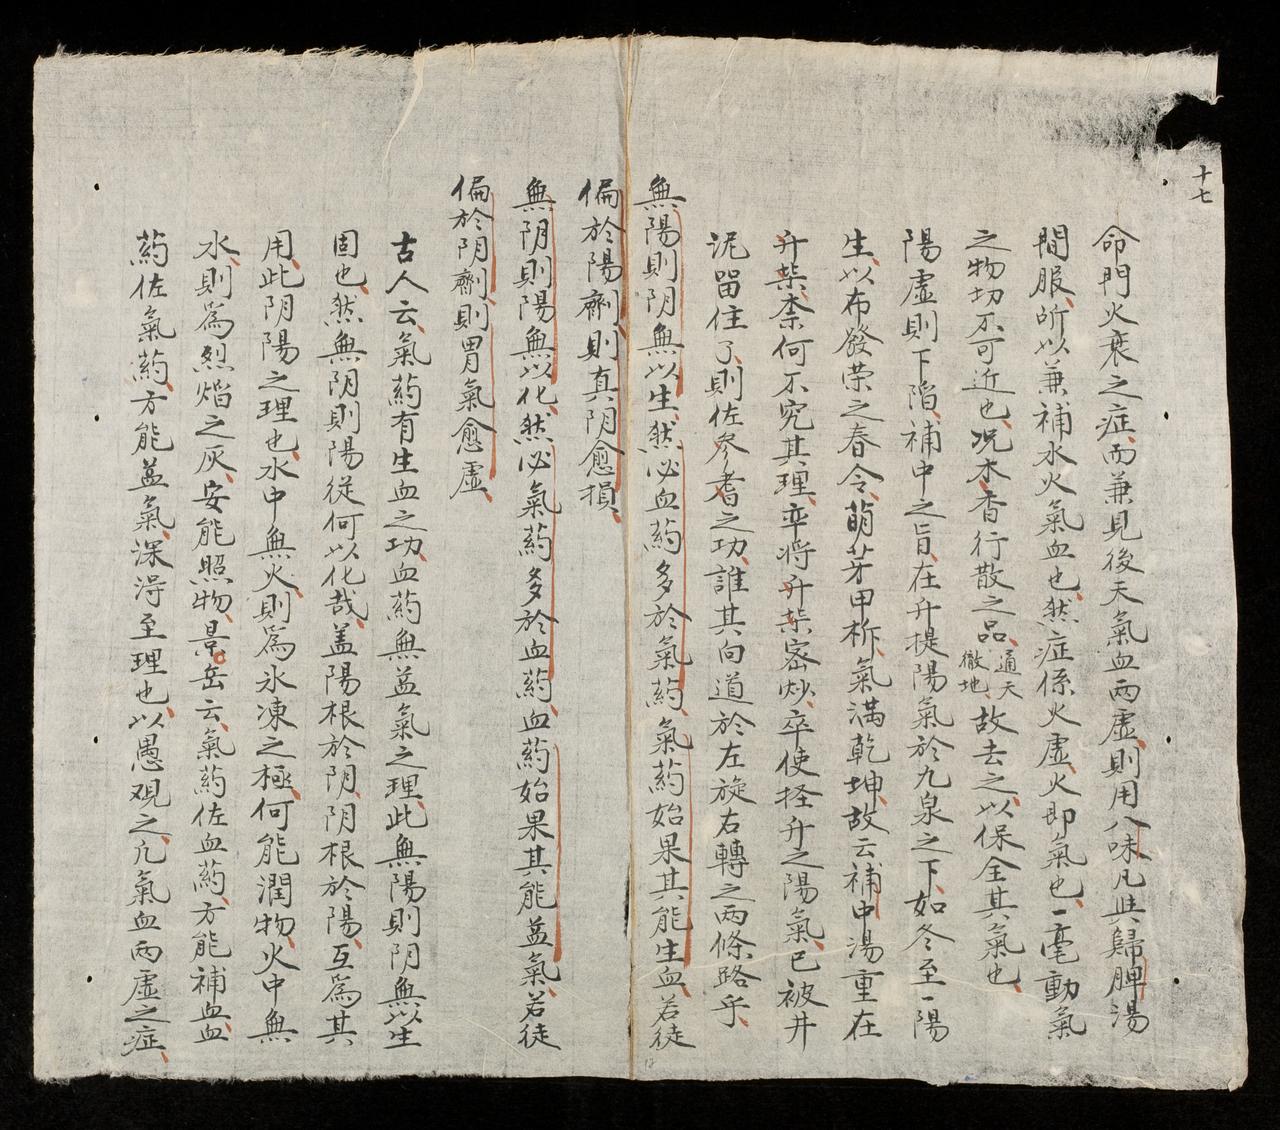 十七
命門火衰之症、而兼見後天氣血兩虛、則用八味、凡與歸脾湯
間服、所以兼補水火氣血也、然症係火虛、火即氣也、一毫動氣
之物切不可近也、况木香行散之品、通天徹地、故去之、以保全其氣也、
陽虛則下陷、補中之旨、在升提陽氣於九泉之下、如冬至一陽
生、以布發荣之春令、萌芽甲柝、氣滿乾坤、故云補中湯重在
升柴、柰何不究其理、卒将升柴密炒、卒使拯升之陽氣、已被井
泥畄住了、則佐參耆之功、誰其向道於左旋右轉之兩條路乎、
無陽則阴無以生、然必血葯多於氣葯、氣葯始果其能生血、若徒
偏於陽劑、則真阴愈損、
無阴則陽無以化、然必氣葯多於血葯、血葯始果其能益氣、若徒
偏於阴劑、則胃氣愈虛、
古人云、氣葯有生血之功、血葯無益氣之理、此無陽則阴無以生
固也、然無阴則陽從何以化哉、盖陽根於阴、阴根於陽、互爲其
用、此阴陽之理也、水中無火、則爲氷凍之極、何能潤物、火中無
水、則爲烈焰之灰、安能照物、景岳云、氣葯佐血葯、方能補血、血
葯佐氣葯、方能益氣、深淂至理也、以愚观之、凢氣血兩虛之症、